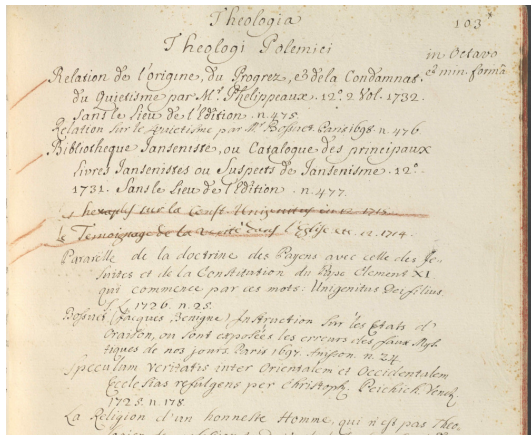 Theologia
103
Theologi Polemici
in Octavo
et min. formâ
Relation de l'origine, du Progrez, et de la Condamnat.
du Quietisme par Mr. Phelippeaux. 12º. 2 Vol. 1732.
sans le Lieu de l'Edition. n. 475.
Relation sur le Quietisme par Mr. Bossuet. Paris 1698. n. 476.
Bibliotheque Janseniste, ou Catalogue des principaux
livres Jansenistes ou Suspects de Jansenisme. 12º.
1731. Sans le Lieu de l'Edition. n. 477.
hexaples sur la Const. Unigenitus in 12. 1715.
Le Temoignage de la verité dans l'Eglise etc. 12. 1714.
Pararelle de la doctrine des Payens avec celle des Je-
suites et de la Constitution du Pape Clement XI
qui commence par ces mots: Unigenitus Dei filius.
1726. n. 25.
Bossuet (Jacques Benigne) Instruction sur les Etats d'
Oraison, ou sont exposées les erreurs des faux Mys-
tiques de nos jours. Paris 1697. Anisson. n. 24.
Speculum veritatis inter Orientalem et Occidentalem
Ecclesias refulgens per Christoph. Peichich. Venet.
1725. n. 178.
La Religion d'un honneste Homme, qui n'est pas Theo-